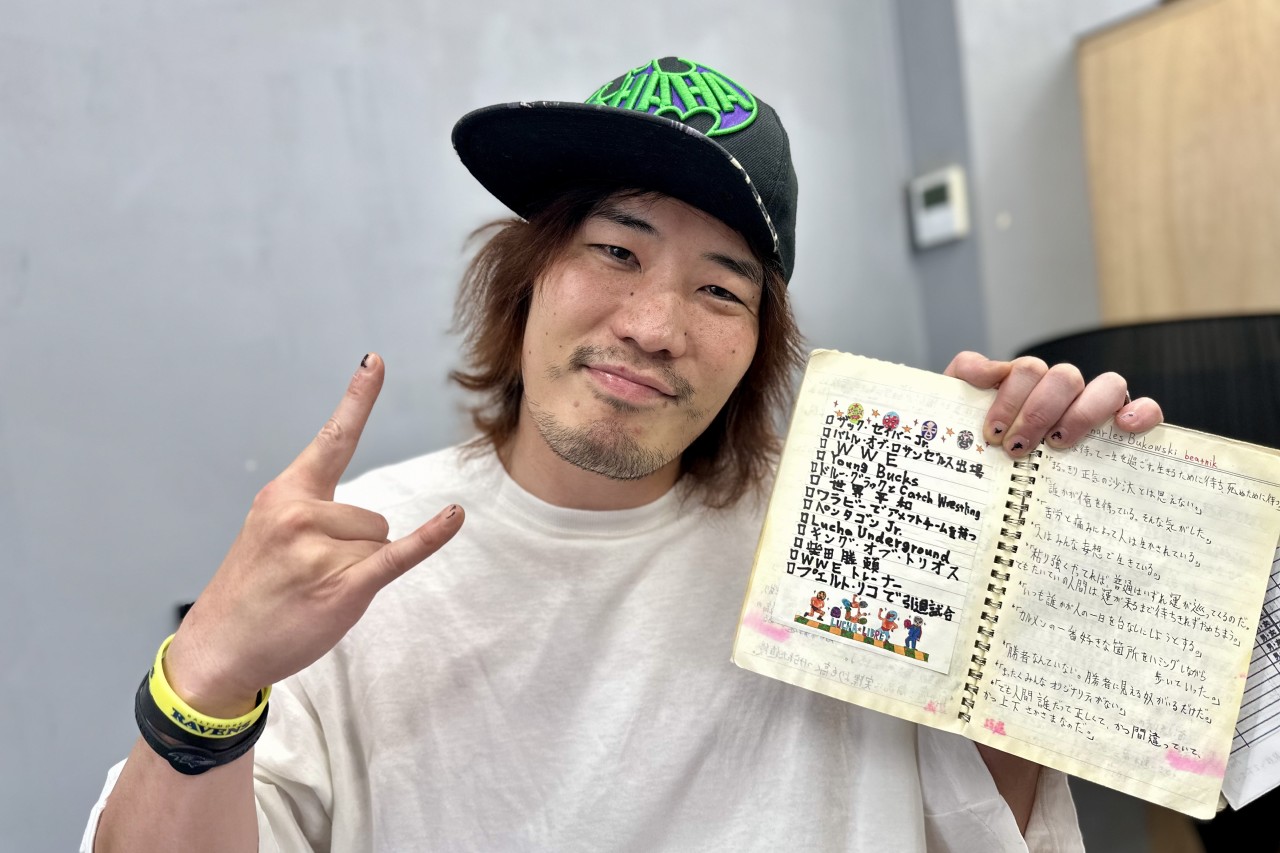 HAHA
RAVENS
□ザック・セイバーJr.
□バトル・オブ・ロサンゼルス出場
□WWE
□Young Bucks
□ドリュー・グラックとCatch Wrestling
□世界平和
□ワラビーでアメフトチームを持つ
□ペンタゴンJr.
□Lucha Underground
□キング・オブ・トリオス
□柴田勝頼
□WWEトレーナー
□プエルト・リコで引退試合
LUCHA LIBRE
Charles Bukowski beatnik
待って一生を過ごす。生きるために待ち、死ぬために待つ
「まるっきり正気の沙汰とは思えない。」
「誰かが俺を待っている。そんな気がした。
「苦労と痛みによって人は生かされている。」
「人はみんな妄想で生きている。」
「粘り強くたてれば普通はいずれ運が巡ってくるのだ。
でもたいていの人間は運が来るまで待ちきれずだめちまう。」
「いつも誰かが人の一日を台なしにしようとする。」
「カルメンの一番好きな箇所をハミングしながら
歩いていった。」
「勝者なんていない。勝者に見える奴がいるだけだ。」
「まったくみんなオリジナリティがない。」
「でも人間誰だって正しくて、かつ間違っていて、
かつ上下さかさまなのだ。」